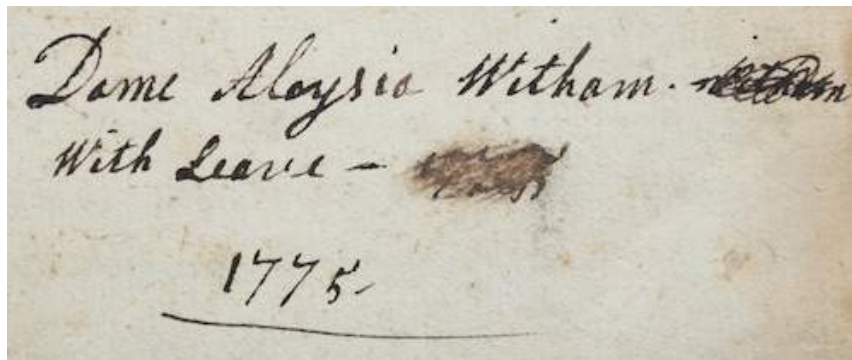 Dame Aloysia Witham.
With Leave –
1775